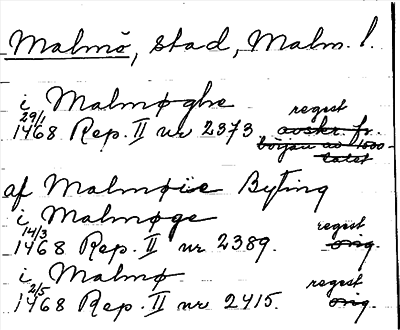 Malmö, stad, Malm. l.
i Malmøghe
29/1 regest
1468 Rep. II nr 2373 avskr. fr.
början av 1600-
talet
af Malmøiie Byting
i Malmøge
14/3 regest
1468 Rep. II nr 2389. orig.
i Malmø
2/5 regest
1468 Rep. II nr 2415. orig.